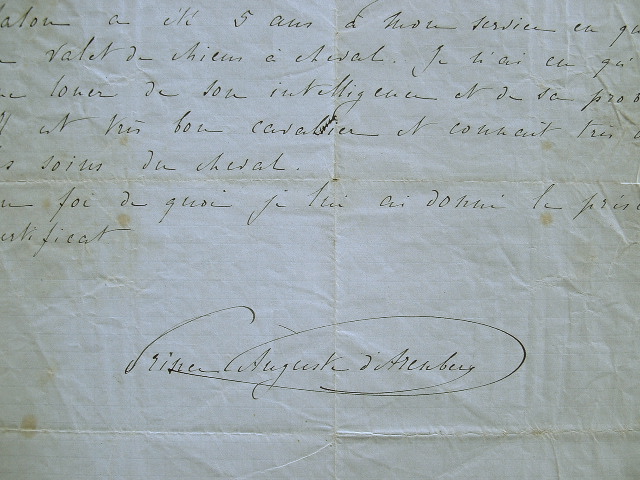 alon a été 5 ans à mon service en qu
valet de chiens à cheval. Je n'ai eu qu'
me louer de son intelligence et de sa prob
Il est très bon cavalier et connait très
soins du cheval.
foi de quoi je lui ai donné le prés
ertificat
Prince Auguste d'Arenberg